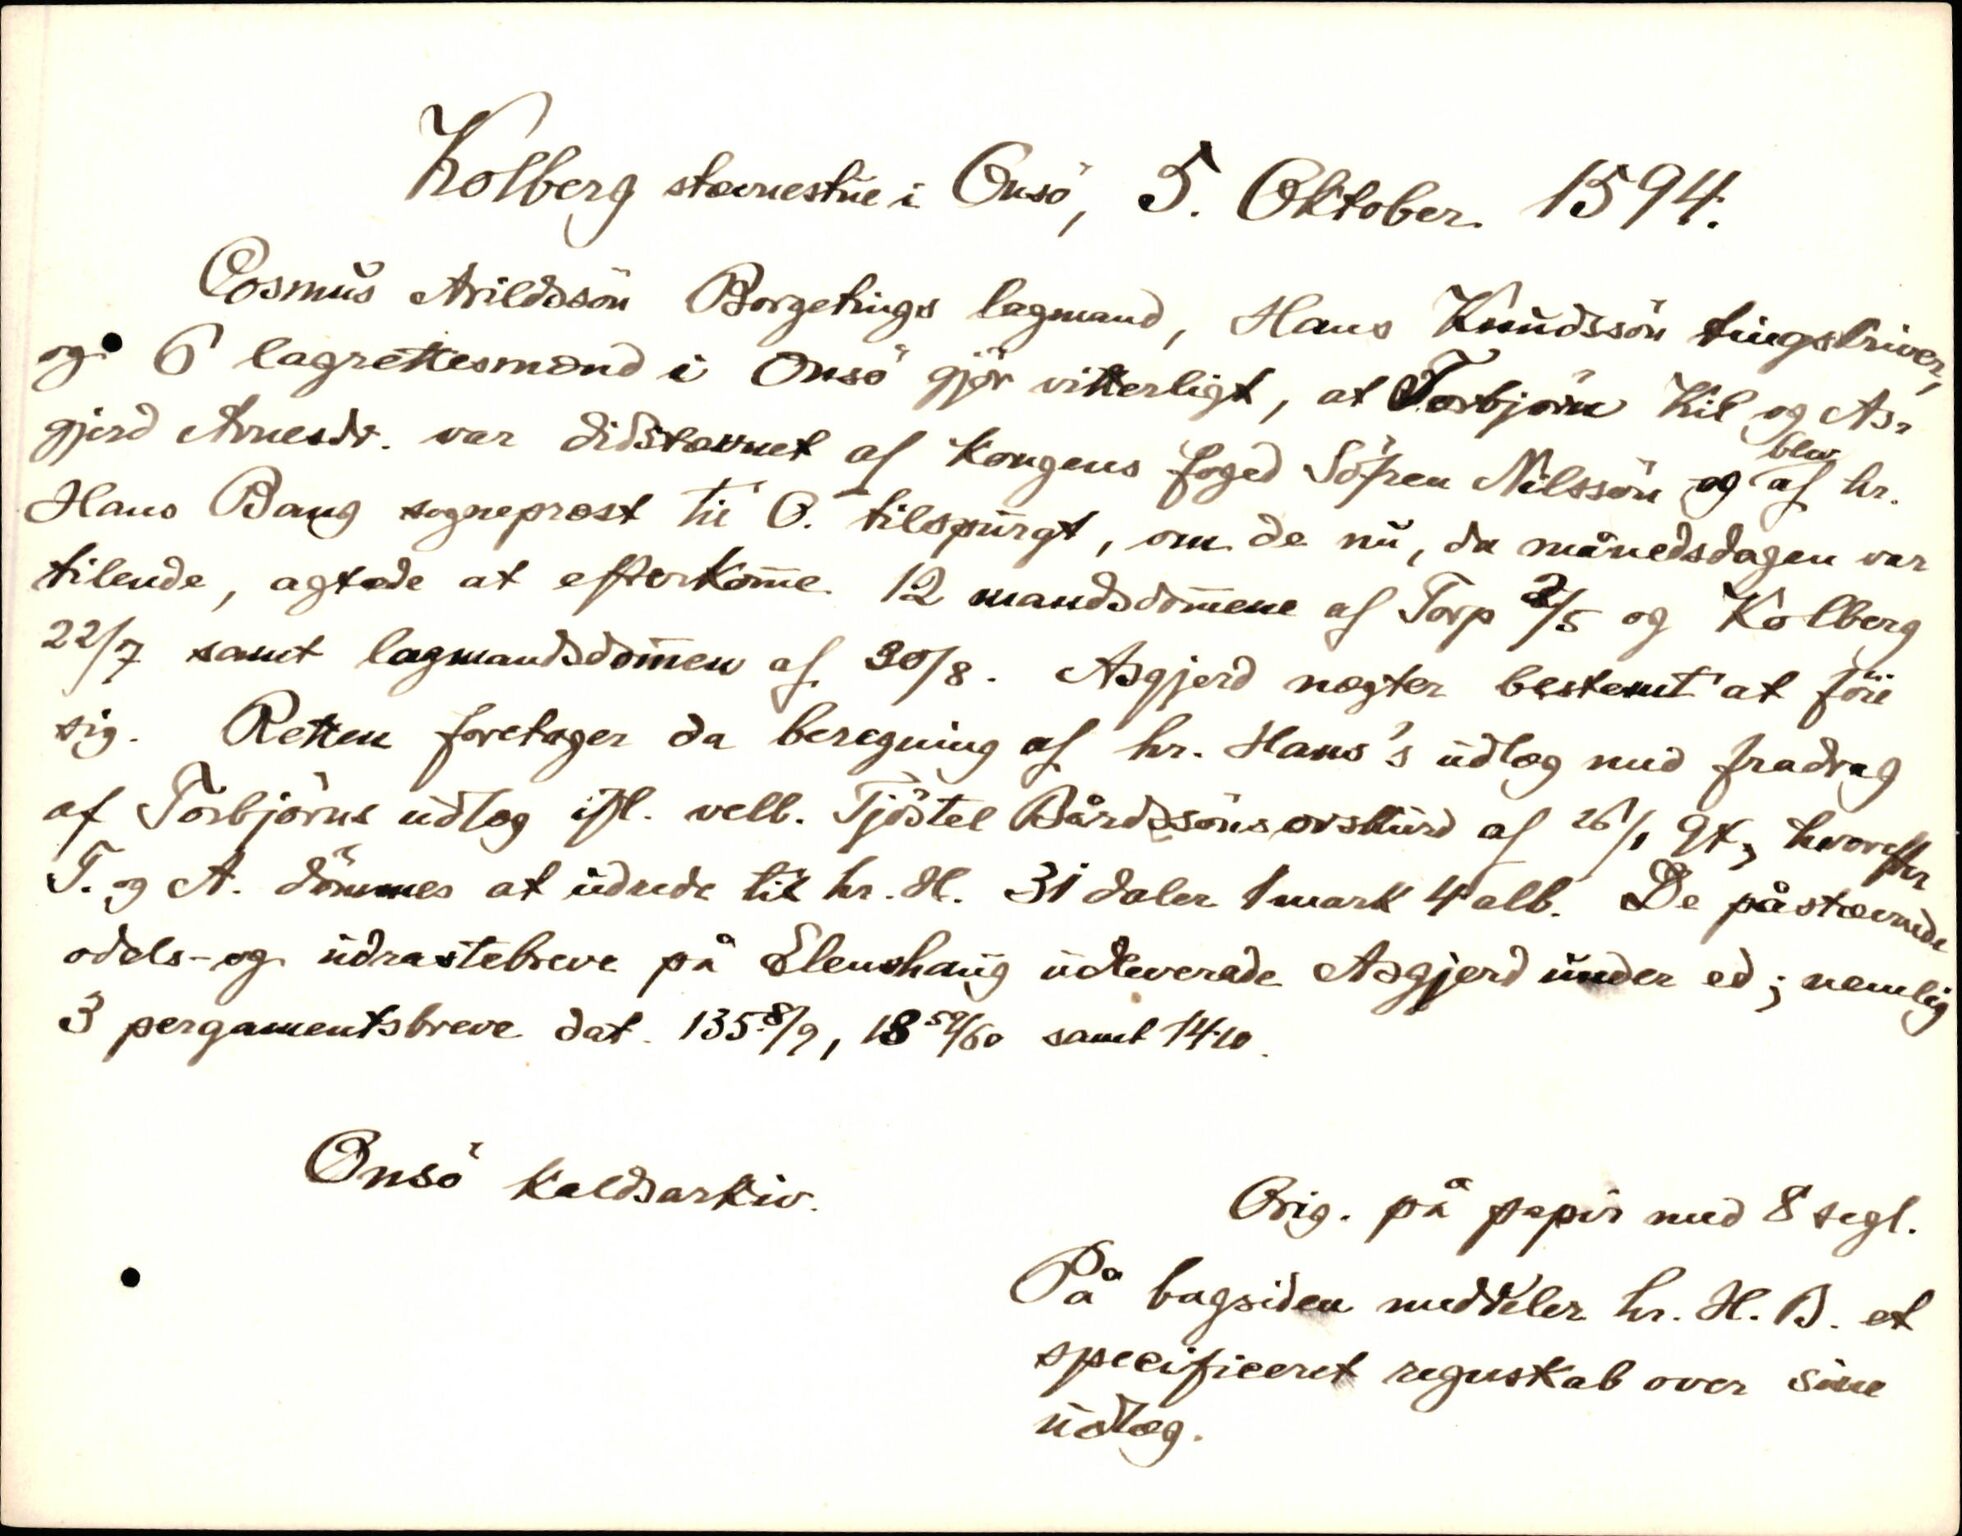 Kolberg stævnestue i Onsö, 5. Oktober 1594.
Cosmus Arildssön Borgetings lagmand, Hans Knudssön tingskriver,
og 6 lagrettesmænd i Onsö gjör vitterligt, at Torbjörn Kil og As-
gjerd Arnesdr. var didstævnet af kongens foged Söfren Nilssön og blev af hr.
Hans Bang sogneprest til O. tilspurgt, om de nu, da månedsdagen var
tilende, agtede at efterkom̅e 12 mandsdom̅ene af Torp 2/5 og Kolberg
22/7 samt lagmandsdom̅en af 30/8. Asgjerd nægter bestemt at föie
sig. Retten foretager da beregning af hr. Hans's udlæg med fradrag
af Torbjörns udlæg ifl. velb. Tjöstel Bårdssöns orskurd af 26/1 94, hvorefter
T. og A. dömmes at udrede til hr. H. 31 daler 1 mark 4 alb. De påstævnede
odels- og udrastebreve på Elenshaug udleverede Asgjerd under ed; nemlig
3 pergamentsbreve dat. 135 8/9, 18 59/60 samt 1410.
Onsö kaldsarkiv.
Orig. på papir med 8 segl.
På bagsiden meddeler hr. H. B. et
specificeret regnskab over sine
udlæg.